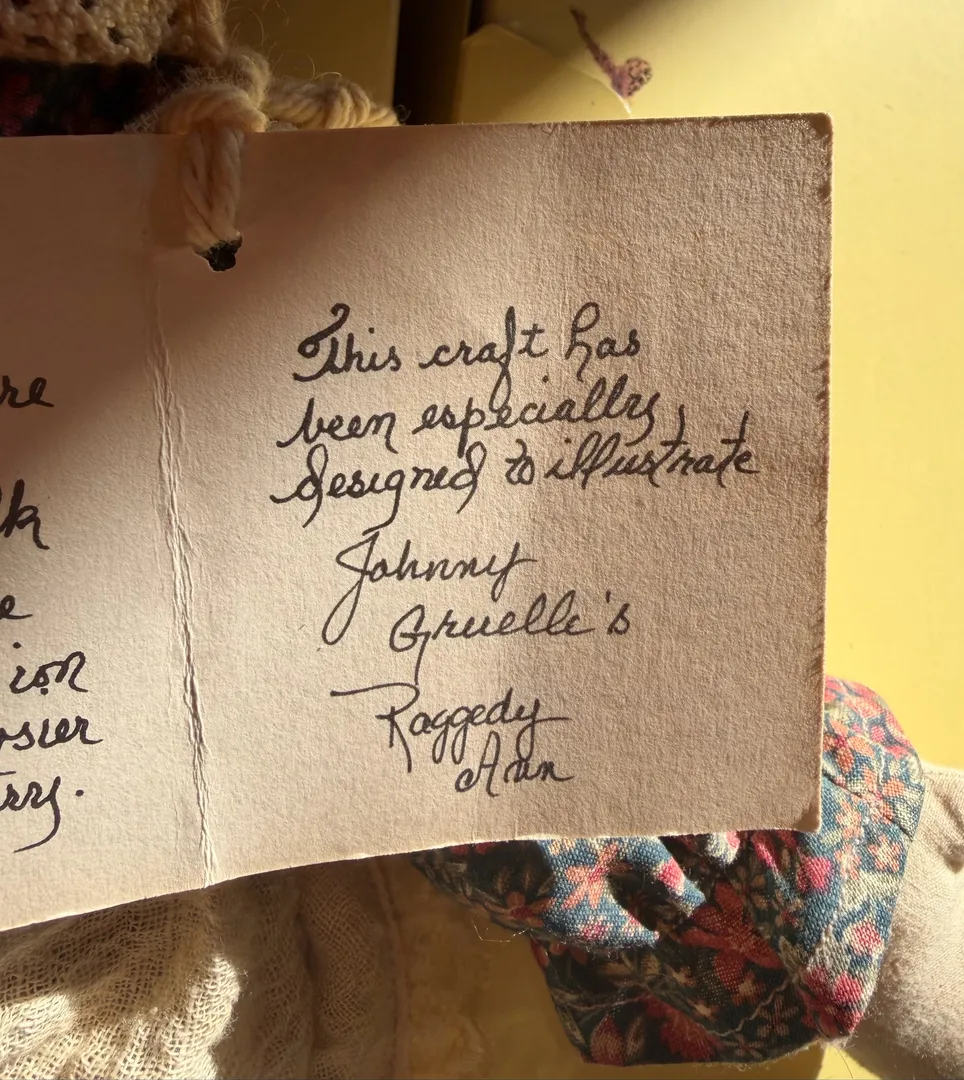 This craft has
been especially
designed to illustrate
Johnny
Gruelle's
Raggedy
Ann